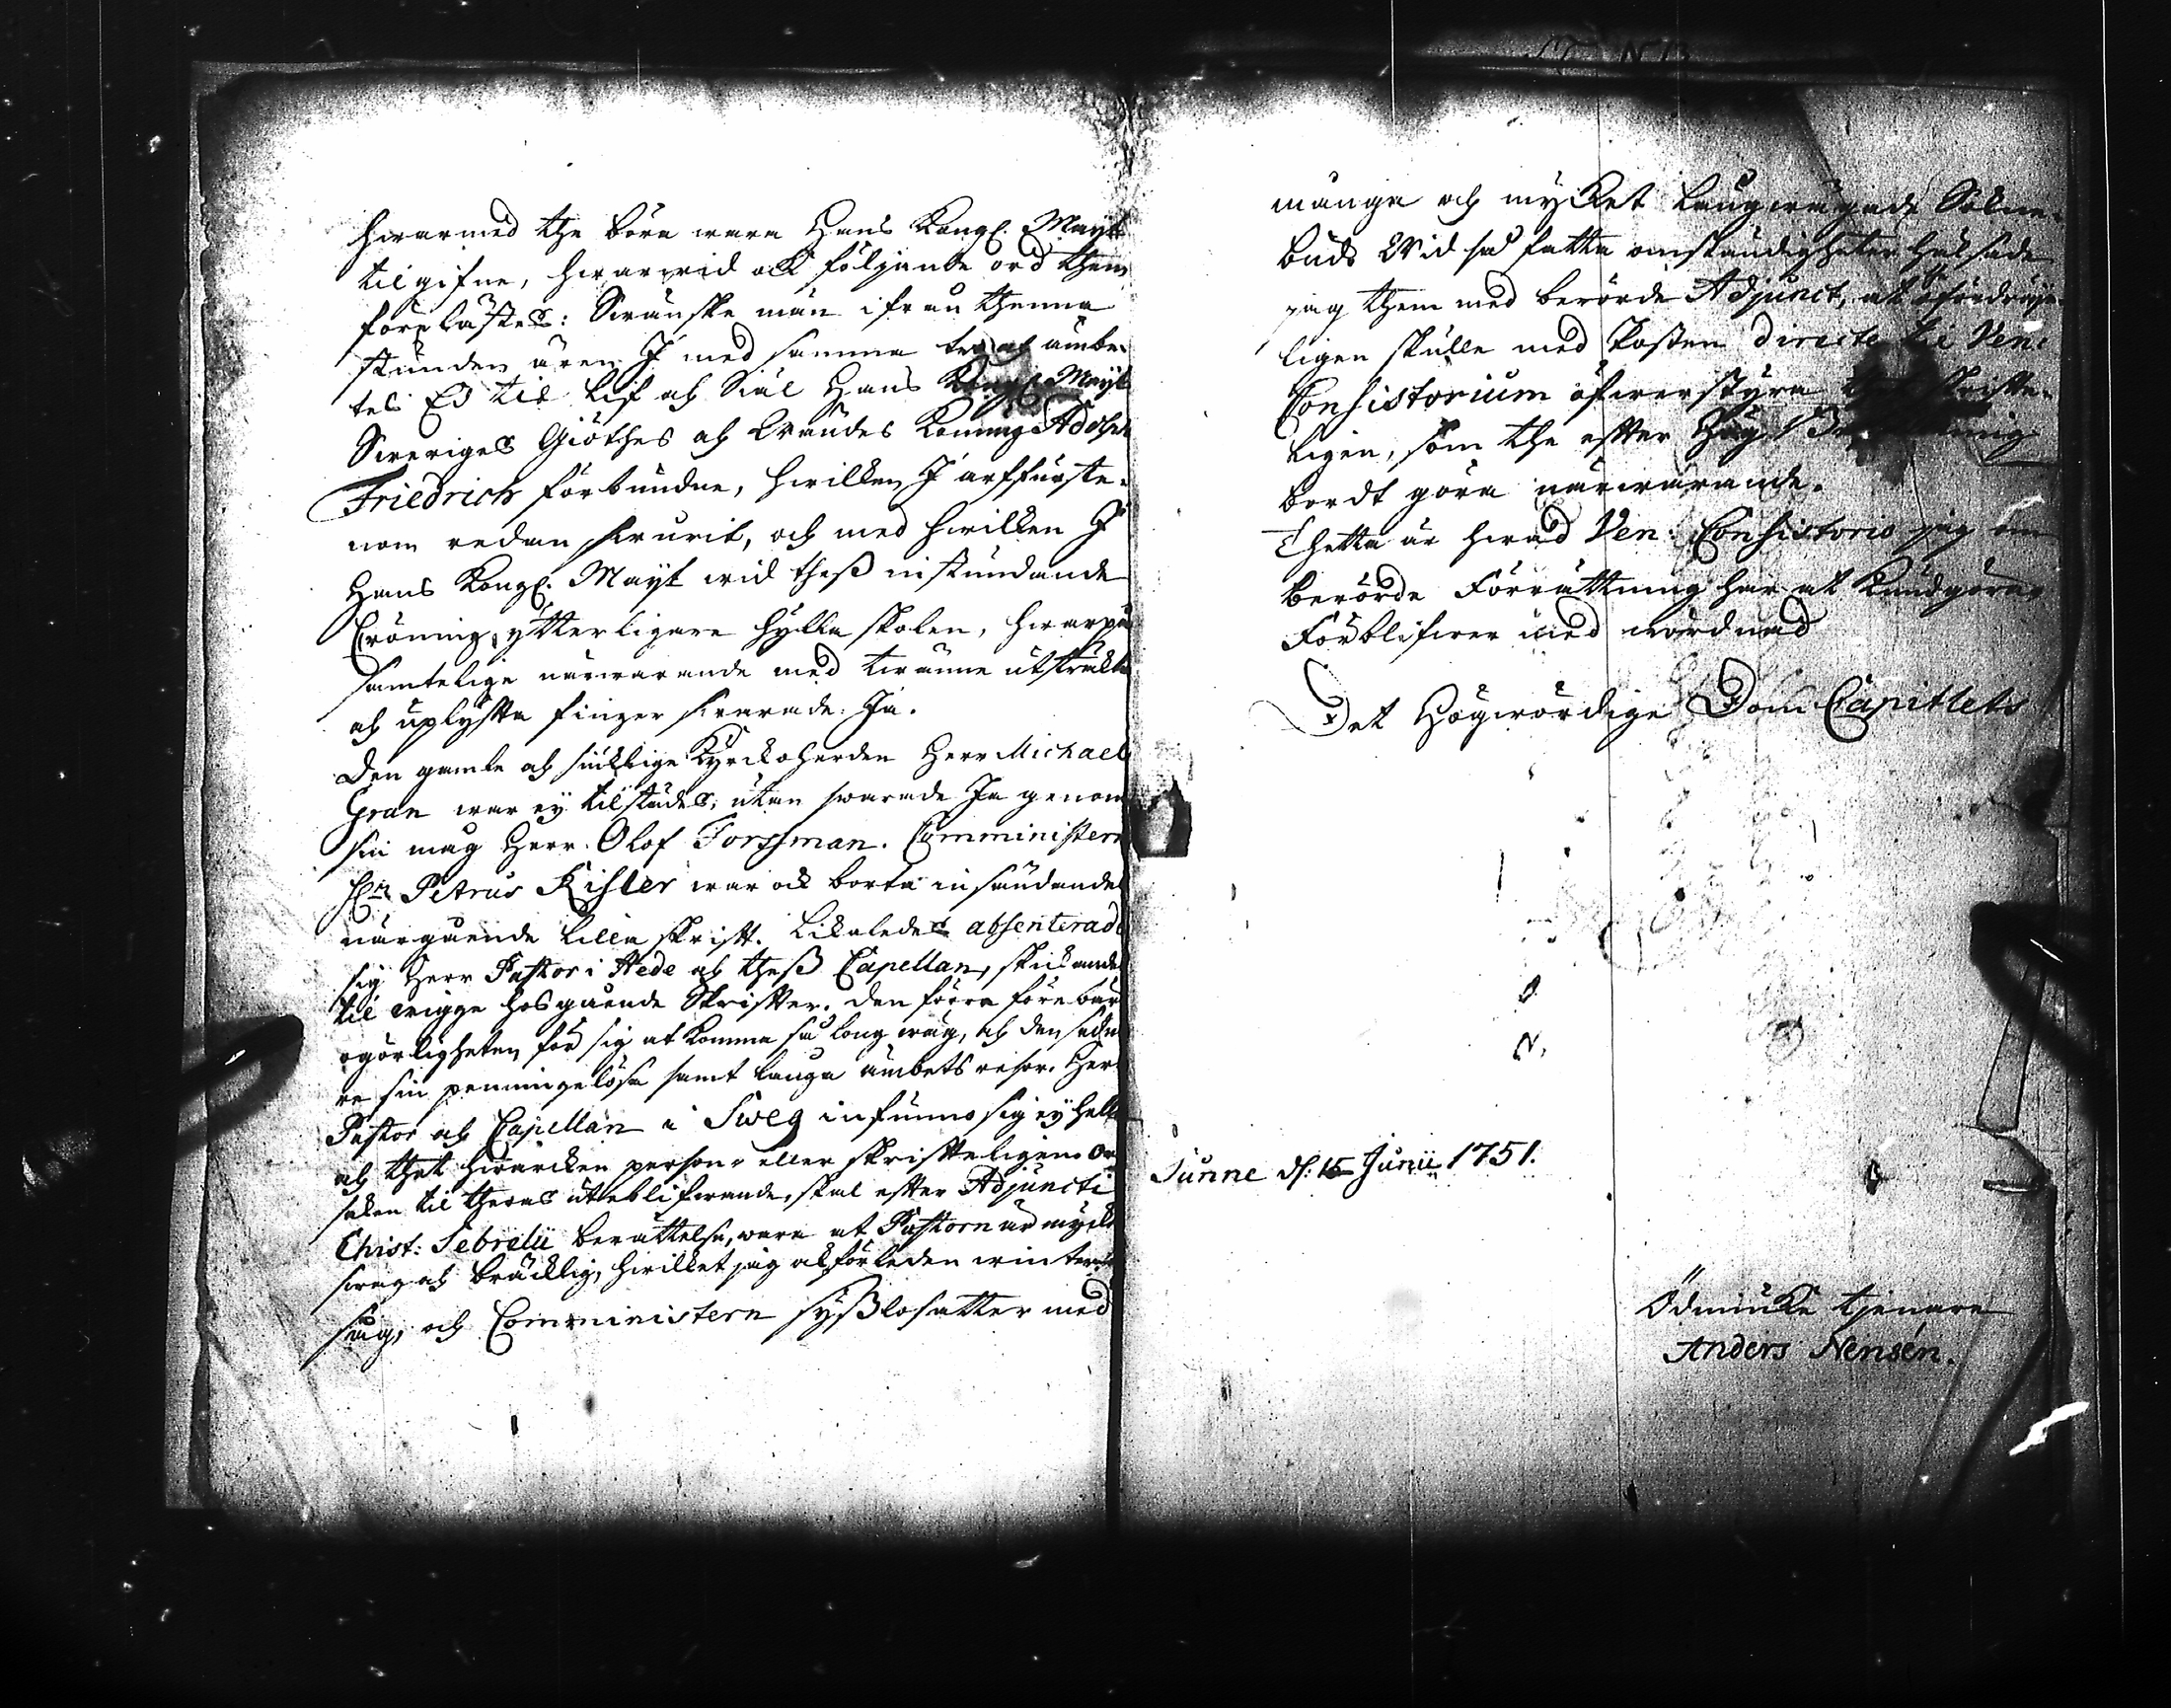 hwarmed the böra wara Hans Kongl. Mayt
tilgifne, hwarwid ock följande ord them
föreläses: Swänske män ifrån thenna
stunden ären I med samma tro och ämbe-
tes Ed til lif och Siäl Hans Kongl. Mayt
Sweriges Giöthes och Wändes Konung Adolph
Friedrich förbundne, hwilken I arffurste-
nom redan swurit, och med hwilken I
Hans Kongl. Mayt wid theß instundande
Cröning ytterligare hylla skolen, hwarpå
samtelige närwarande med twänne utsträkte
och uplyfta finger swarade: Ja.
Den gamle och siuklige Kyrckoherden Herr Michael
Gran war ey tilstädes, utan swarade Ja genom
sin mag Herr Olof Forssman. Comministern
Hr Petrus Kisler war ock borta insändandes
närgående lilla skrift. Likaledes absenterade
sig Herr Pastor i Hede och theß Capellan, skickandes
til wigge hosgående Skrifter. Den förra förebär
ogörligheten för sig at komma så lång wäg, och den sedna-
re sin penningelösa samt långa ämbets resor. Herr
Pastor och Capellan i Sweg infunno sig ey heller
och thet hwarcken person- eller skrifteligen. Or-
saken til theras uteblifwande, skal efter Adjuncti
Christ: Sebrelii berättelse, wara at Pastorn är myckt
swag och bräcklig, hwilket jag ock förleden winter
såg, och Comministern sysslosatter med
många och mycket långwägade Sokne-
buds Wid så fatta omständigheter hälsade
jag them med berörde Adjunct, at ofördröye-
ligen skulle med Posten directe til Vene
Consistorium öfwerstyra thet skrifte-
ligen, som the efter Hög
bordt göra närwarande.
Thetta är hwad Ven: Consistorio jag om
berörde Förrättning har at kundgöra
Förblifwer med wördnad
Det Högwördige Dom Capitlets
Sunne d. 15 Junii 1751.
Ödmiuke tjenare
Anders Nensén.